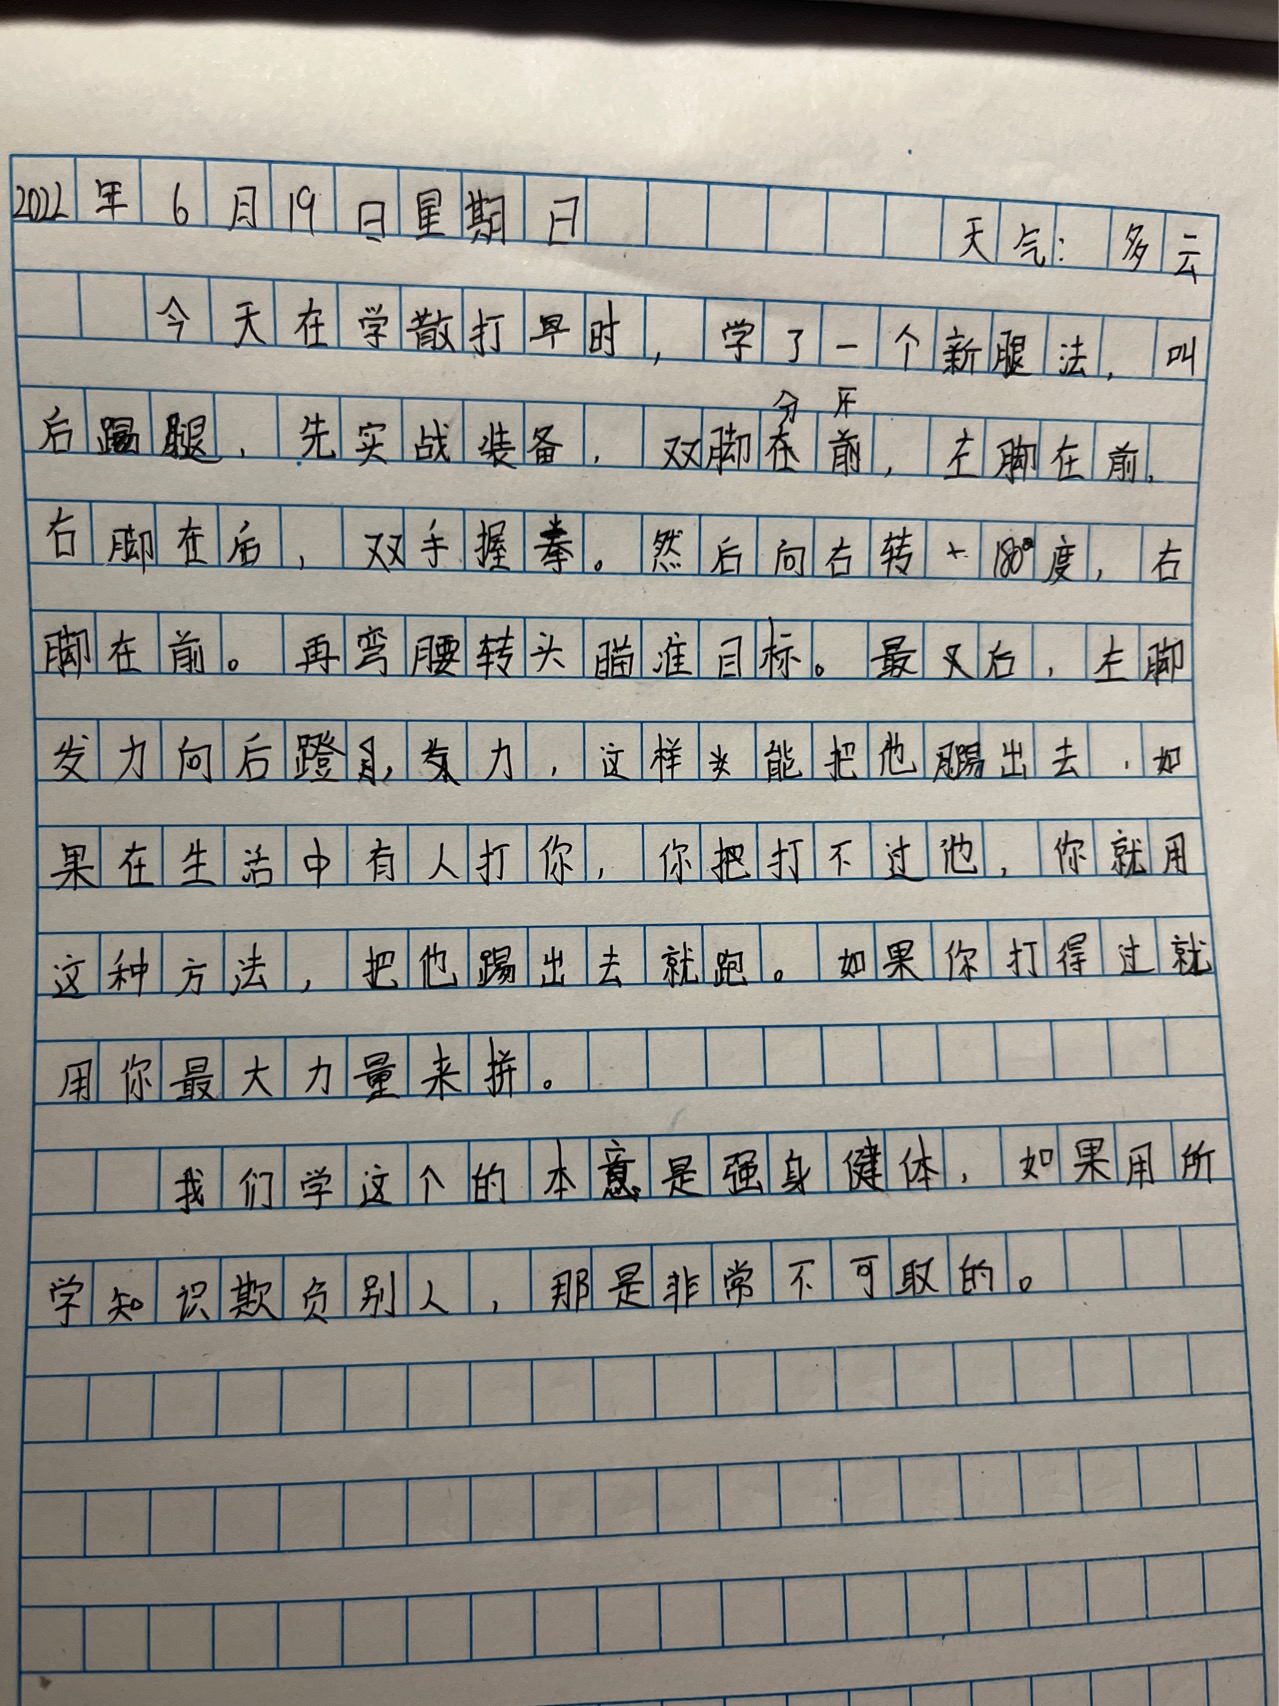 2022年6月19日星期日 天气：多云
今天在学散打早时，学了一个新腿法，叫
分开
后踢腿，先实战装备，双脚在前，左脚在前，
右脚在后，双手握拳。然后向右转180°度，右
脚在前。再弯腰转头瞄准目标。最后，左脚
发力向后蹬，发力，这样能把他踢出去，如
果在生活中有人打你，你把打不过他，你就用
这种方法，把他踢出去就跑。如果你打得过就
用你最大力量来拼。
我们学这个的本意是强身健体，如果用所
学知识欺负别人，那是非常不可取的。